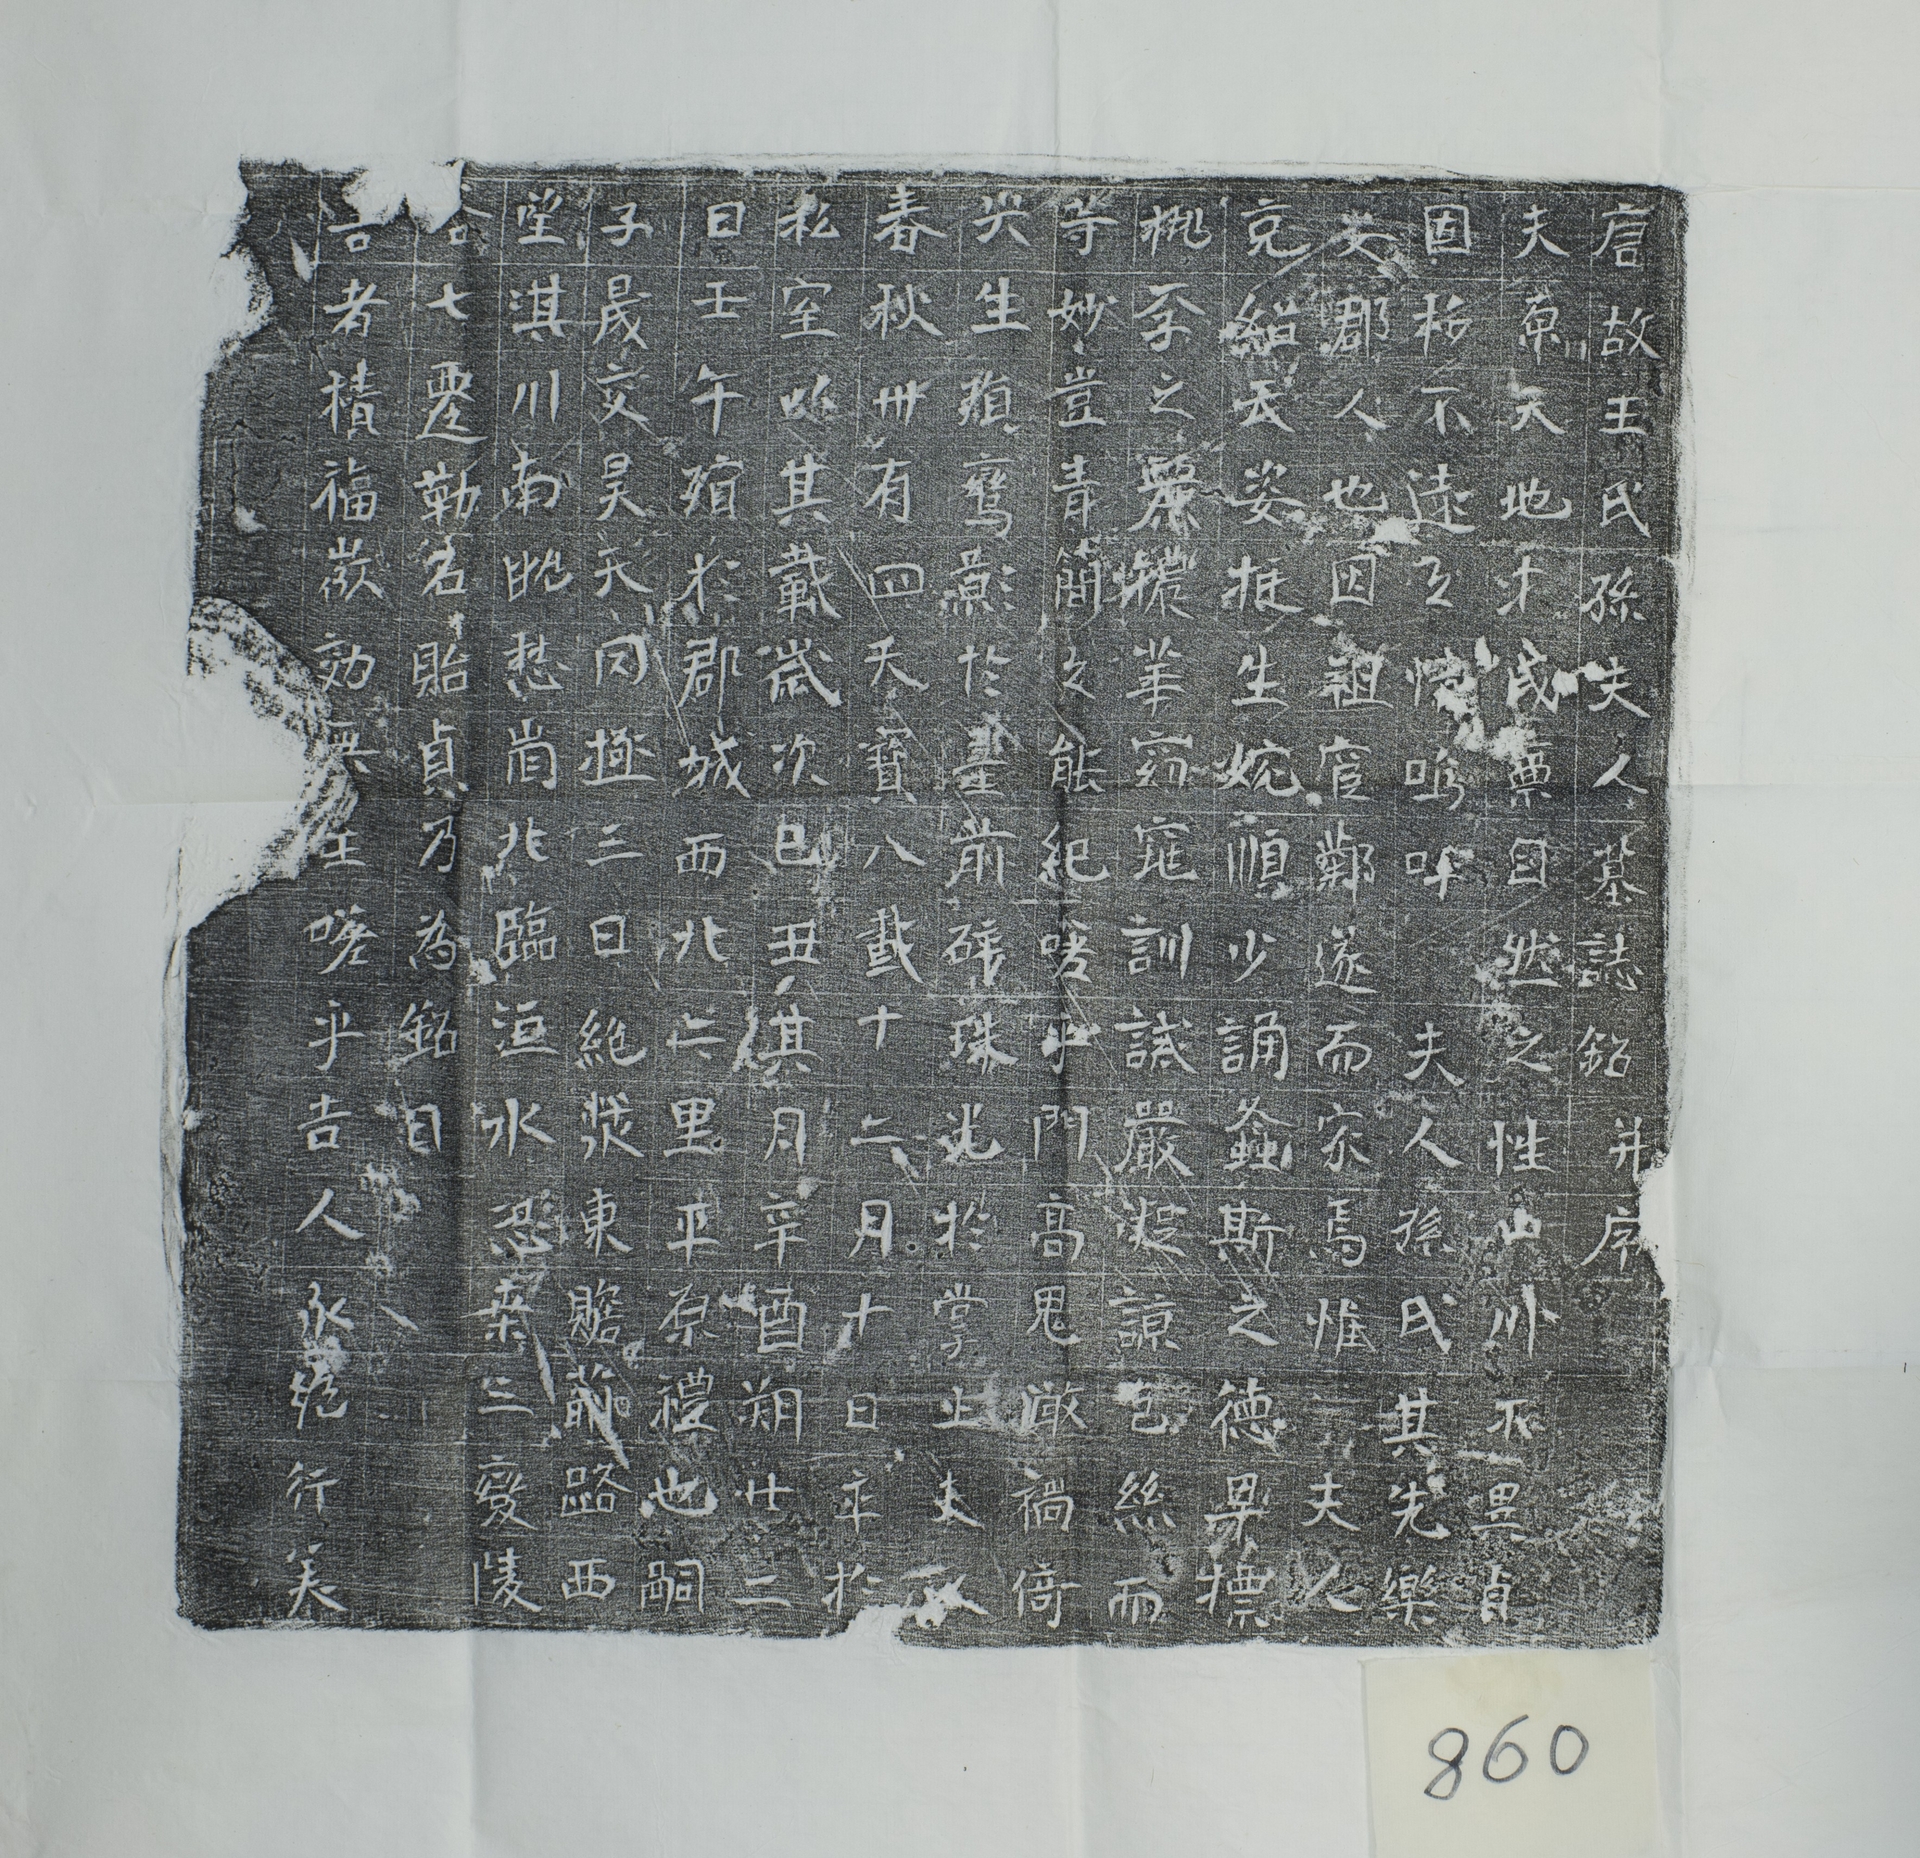 唐故王氏孫夫人墓誌銘并序
夫稟天地才成稟自然之性山川不異貞
固移不遠立 嗚呼 夫人孫氏其先樂
安郡人也因祖宦鄴遂而家焉惟 夫人
克紹天姿挺生婉順少誦螽斯之德早摽
桃李之麗穠華窈窕訓誡嚴凝諒芭絲而
等妙豈青簡之能紀嗟乎門高鬼瞰禍倚
災生殞鸞影於臺前碎珠光於掌上夫人
春秋卅有四天寶八載十二月十日卒於
私室以其載歲次己丑其月辛酉朔廿二
日壬午殯於郡城西北二里平原禮也嗣
子晟交昊天罔極三日絕漿東瞻 路西
望淇川南眺愁崗北臨洹水恐桒三變陵
谷七遷勒名貽貞乃為銘曰
古者積福 效無生嗟乎吉人永絕行矣
860